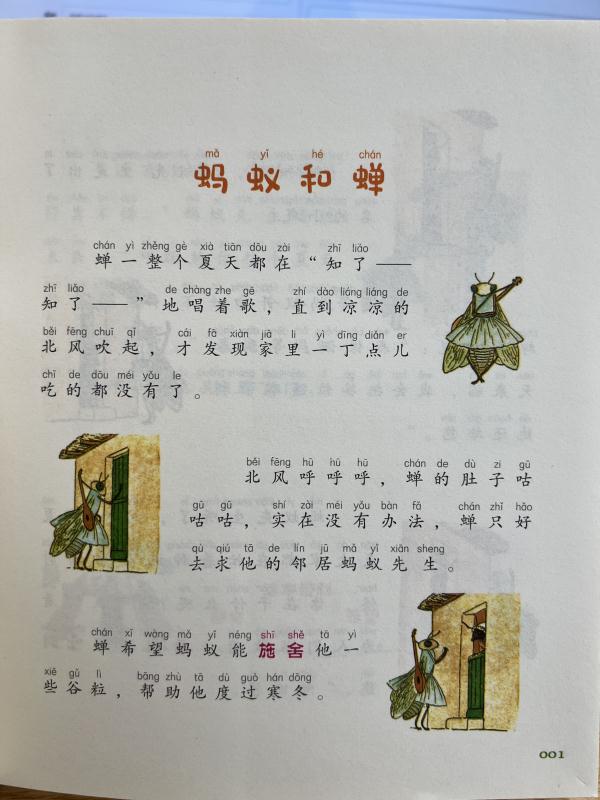 mǎ yǐ hé chán
蚂蚁和蝉
chán yì zhěng gè xià tiān dōu zài zhī liǎo
蝉一整个夏天都在“知了——
zhī liǎo de chàng zhe gē zhí dào liáng liáng de
知了——”地唱着歌，直到凉凉的
běi fēng chuī qǐ cái fā xiàn jiā li yì dīng diǎn er
北风吹起，才发现家里一丁点儿
chī de dōu méi yǒu le
吃的都没有了。
běi fēng hū hū hū chán de dù zi gū
北风呼呼呼，蝉的肚子咕
gū gū shí zài méi yǒu bàn fǎ chán zhǐ hǎo
咕咕，实在没有办法，蝉只好
qù qiú tā de lín jū mǎ yǐ xiān sheng
去求他的邻居蚂蚁先生。
chán xī wàng mǎ yǐ néng shī shě tā yì
蝉希望蚂蚁能施舍他一
xiē gǔ lì bāng zhù tā dù guò hán dōng
些谷粒，帮助他度过寒冬。
001